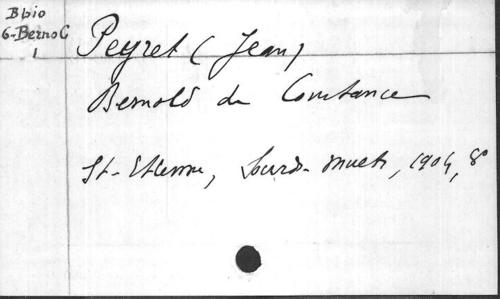 Bbio
6-BernoC
1
Peyret (Jean)
Bernold de Constance
St-Etienne, Sourds-muets, 1904, 8°